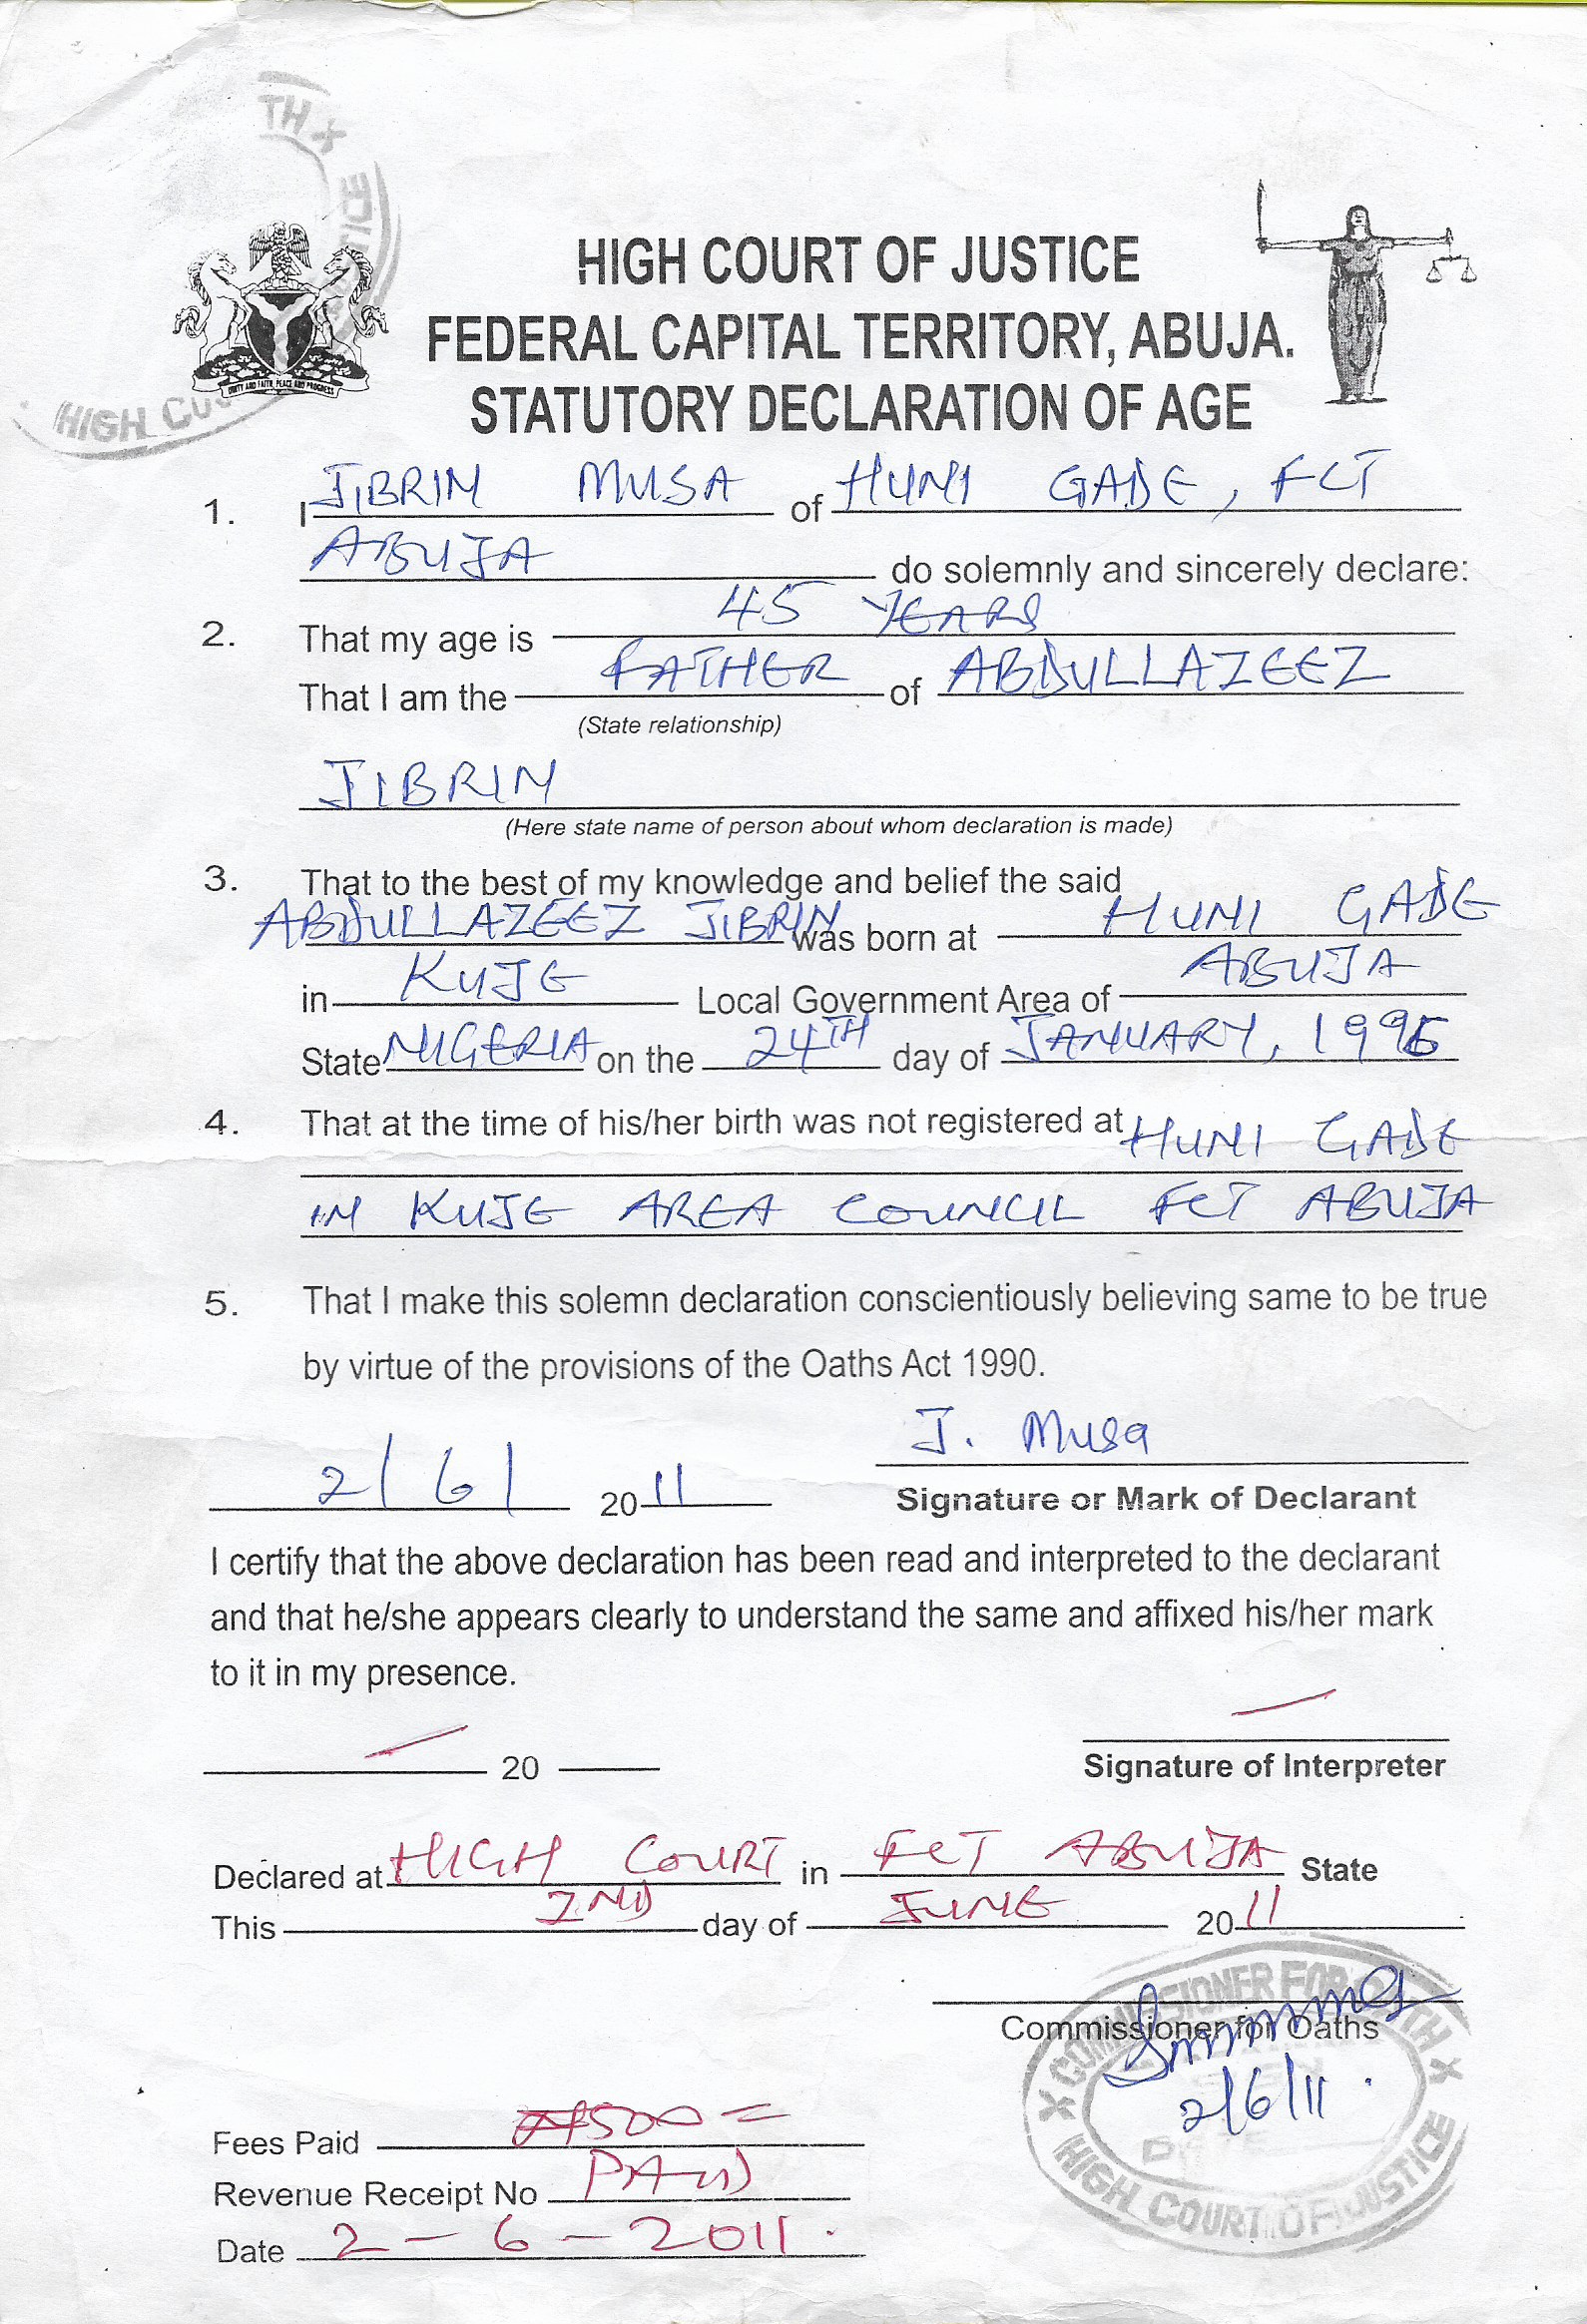 TH X
HIGH COU
UNITY AND FAITH, PEACE AND PROGRESS
HIGH COURT OF JUSTICE
FEDERAL CAPITAL TERRITORY, ABUJA.
STATUTORY DECLARATION OF AGE
1. I JIBRIN MUSA of HUNI GADE, FCT
ABUJA do solemnly and sincerely declare:
2. That my age is 45 YEARS
That I am the FATHER of ABDULLAZEEZ
(State relationship)
JIBRIN
(Here state name of person about whom declaration is made)
3. That to the best of my knowledge and belief the said
ABDULLAZEEZ JIBRIN was born at HUNI GADE
in KUJE Local Government Area of ABUJA
State NIGERIA on the 24TH day of JANUARY,
4. That at the time of his/her birth was not registered at HUNI GADE
IN KUJE AREA COUNCIL FCT ABUJA
5. That I make this solemn declaration conscientiously believing same to be true
by virtue of the provisions of the Oaths Act 1990.
J. Musa
2/6/ 2011
Signature or Mark of Declarant
I certify that the above declaration has been read and interpreted to the declarant
and that he/she appears clearly to understand the same and affixed his/her mark
to it in my presence.
20
Signature of Interpreter
Declared at HIGH COURT in FCT ABUJA State
This 2ND day of JUNE 2011
Commissioner for Oaths
X COMMISSIONER FOR OATH X
2/6/11
HIGH COURT OF JUSTICE
Fees Paid ₦500=
Revenue Receipt No PAID
Date 2-6-2011.